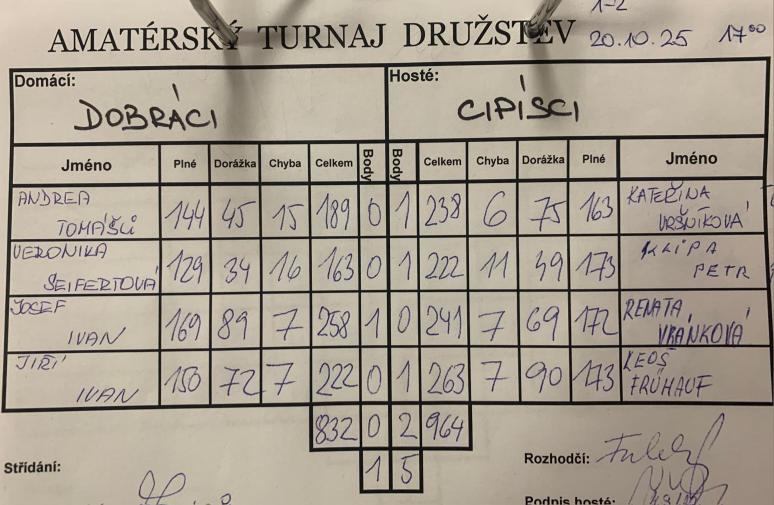 1-2
AMATÉRSKÝ TURNAJ DRUŽSTEV 20.10.25 17⁰⁰
Domácí: Hosté:
DOBRÁCI CIPÍSCI
Jméno Plné Dorážka Chyba Celkem Body Body Celkem Chyba Dorážka Plné Jméno
ANDREA TOMÁŠŮ 144 45 15 189 0 1 238 6 75 163 KATEŘINA VRŠNÍKOVÁ
VERONIKA SEIFERTOVÁ 129 34 16 163 0 1 222 11 49 173 KLÍPA PETR
JOSEF IVAN 169 89 7 258 1 0 241 7 69 172 RENATA VRÁNKOVÁ
JIŘÍ IVAN 150 72 7 222 0 1 263 7 90 173 LEOŠ FRÜHAUF
832 0 2 964
1 5
Střídání: Rozhodčí:
Podpis hosté: